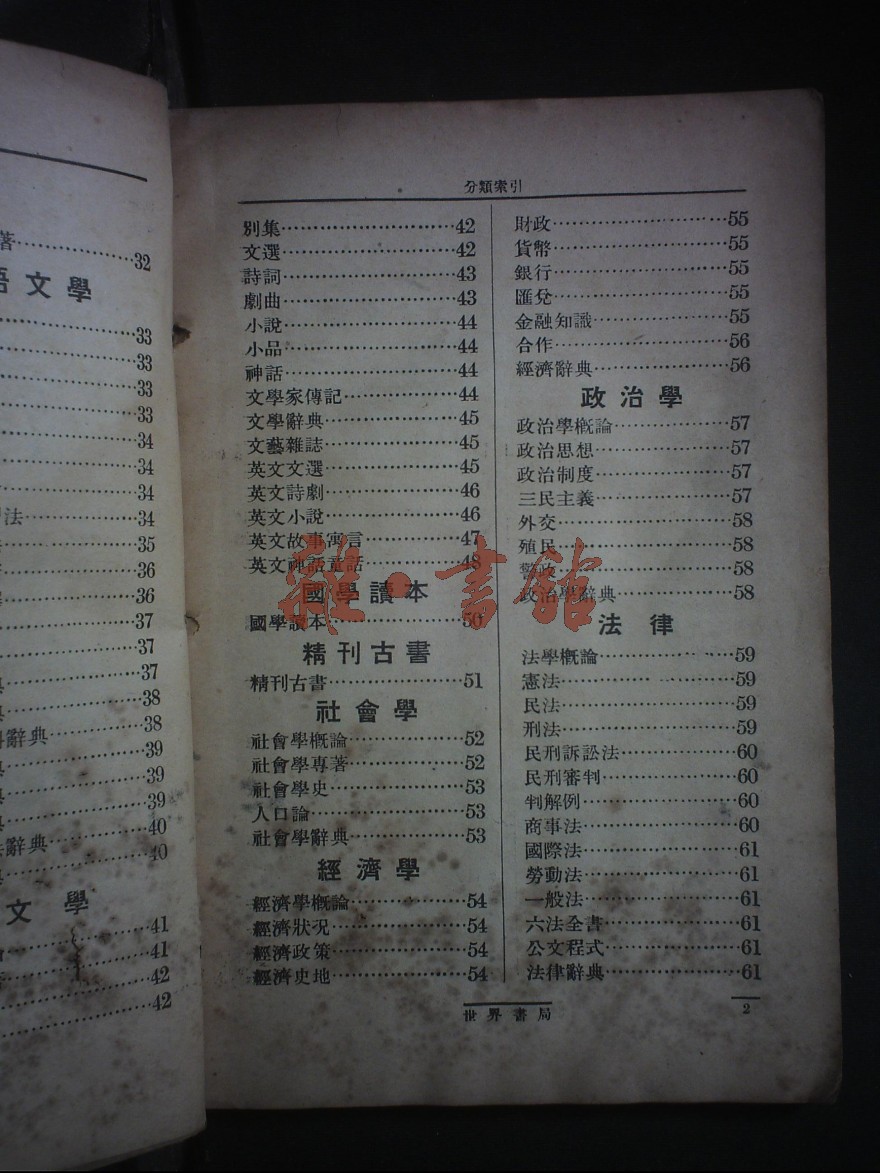 著……………32
語文學
……………33
……………33
……………33
……………33
……………34
……………34
……………34
法……………34
……………35
……………36
……………36
……………37
……………37
……………37
……………38
辭典……………38
……………39
……………39
……………39
辭典……………40
……………40
文學
……………41
……………41
……………42
……………42
分類索引
別集……………42
文選……………42
詩詞……………43
劇曲……………43
小說……………44
小品……………44
神話……………44
文學家傳記……………44
文學辭典……………45
文藝雜誌……………45
英文文選……………45
英文詩劇……………46
英文小說……………46
英文故事寓言……………47
英文神話童話……………48
國學讀本
國學讀本……………50
精刊古書
精刊古書……………51
社會學
社會學概論……………52
社會學專著……………52
社會學史……………53
人口論……………53
社會學辭典……………53
經濟學
經濟學概論……………54
經濟狀況……………54
經濟政策……………54
經濟史地……………54
財政……………55
貨幣……………55
銀行……………55
匯兌……………55
金融知識……………55
合作……………56
經濟辭典……………56
政治學
政治學概論……………57
政治思想……………57
政治制度……………57
三民主義……………57
外交……………58
殖民……………58
警政……………58
政治學辭典……………58
法律
法學概論……………59
憲法……………59
民法……………59
刑法……………59
民刑訴訟法……………60
民刑審判……………60
判解例……………60
商事法……………60
國際法……………61
勞動法……………61
一般法……………61
六法全書……………61
公文程式……………61
法律辭典……………61
世界書局
2
雜·書館